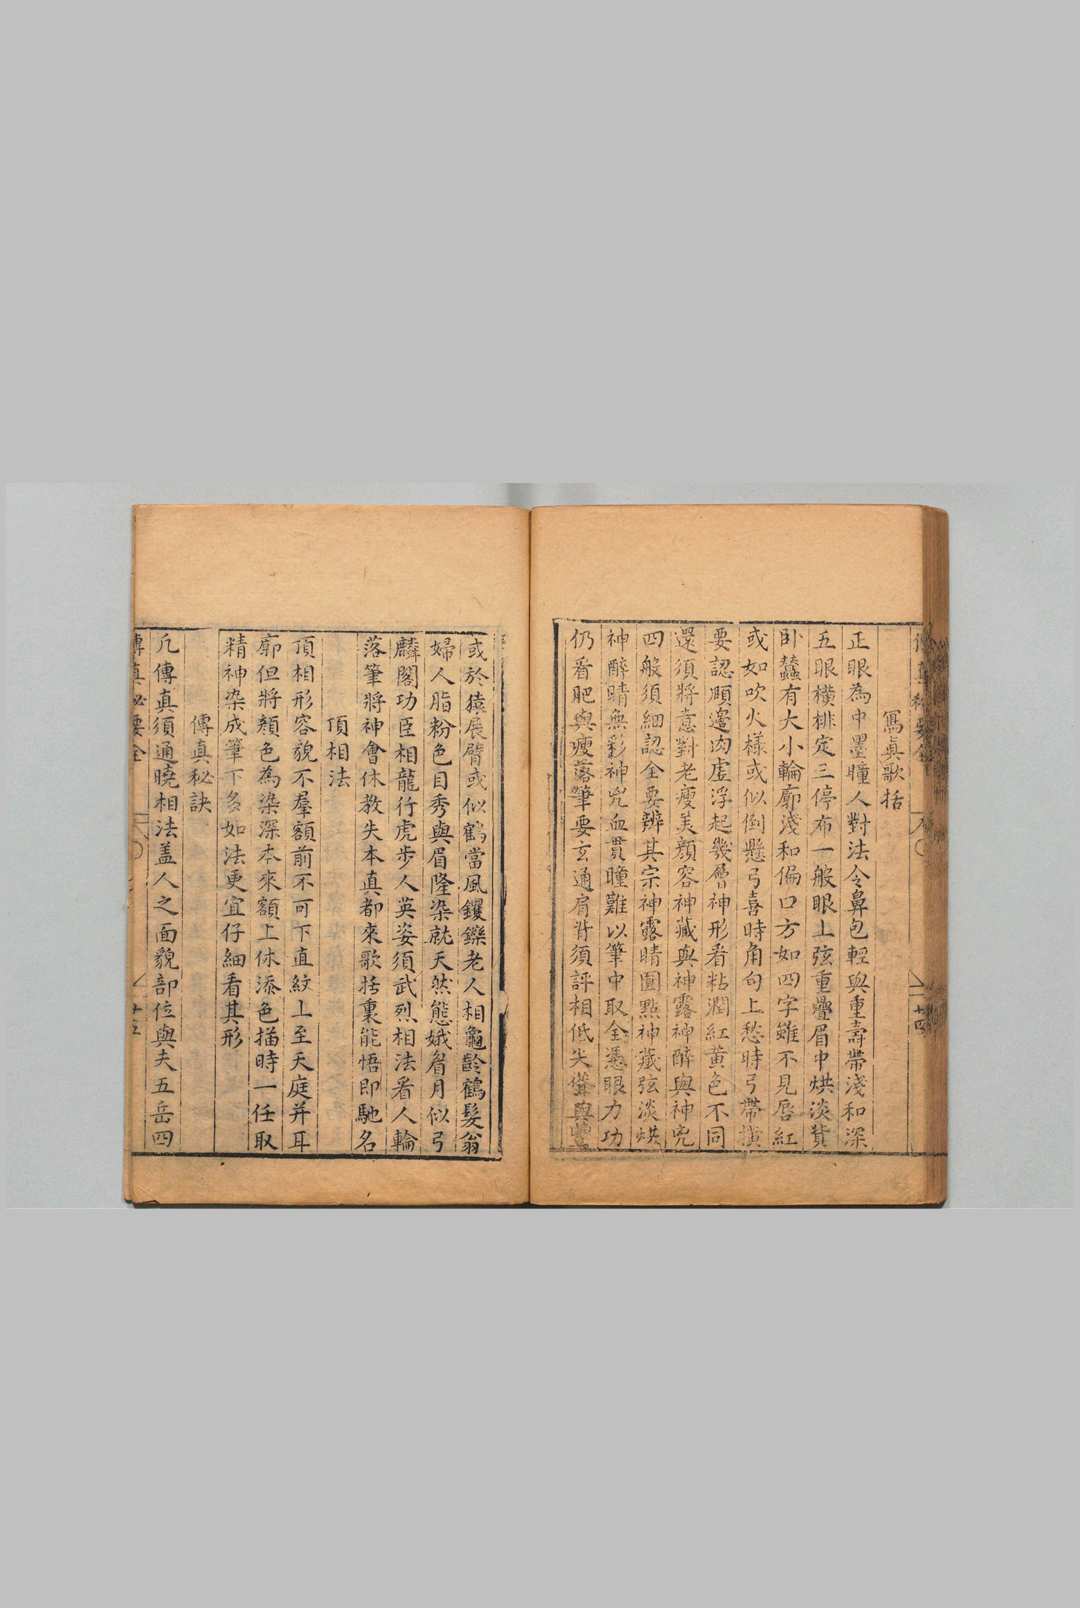 寫眞歌括
正眼為中墨瞳人對法令鼻包輕與重壽帶淺和深
五眼橫排定三停布一般眼上弦重疊眉中烘淡貲
卧蠶有大小輪廓淺和偏口方如四字雖不見唇紅
或如吹火樣或似倒懸弓喜時角向上愁時弓帶橫
要認頤邊肉虛浮起幾層神形看粘潤紅黃色不同
還須將意對老瘦美顏容神藏與神露神醉與神兇
四般須細認全要辨其宗神露睛圓點神藏弦淡烘
神醉睛無彩神兇血貫瞳難以筆中取全憑眼力功
仍看肥與瘦落筆要玄通肩背須評相低尖聳與豐
或於猿展臂或似鶴當風钁鑠老人相龜齡鶴髮翁
婦人脂粉色目秀與眉隆染就天然態娥眉月似弓
麟閣功臣相龍行虎步人英姿須武烈相法看人輪
落筆將神會休教失本真都來歌括裏能悟即馳名
頂相法
頂相形容貌不羣額前不可下直紋上至天庭并耳
廓但將顏色為染深本來額上休添色描時一任取
精神染成筆下多如法更宜仔細看其形
傳真秘訣
凡傳真須通曉相法盖人之面貌部位與夫五岳四
傳真秘要全
廿五